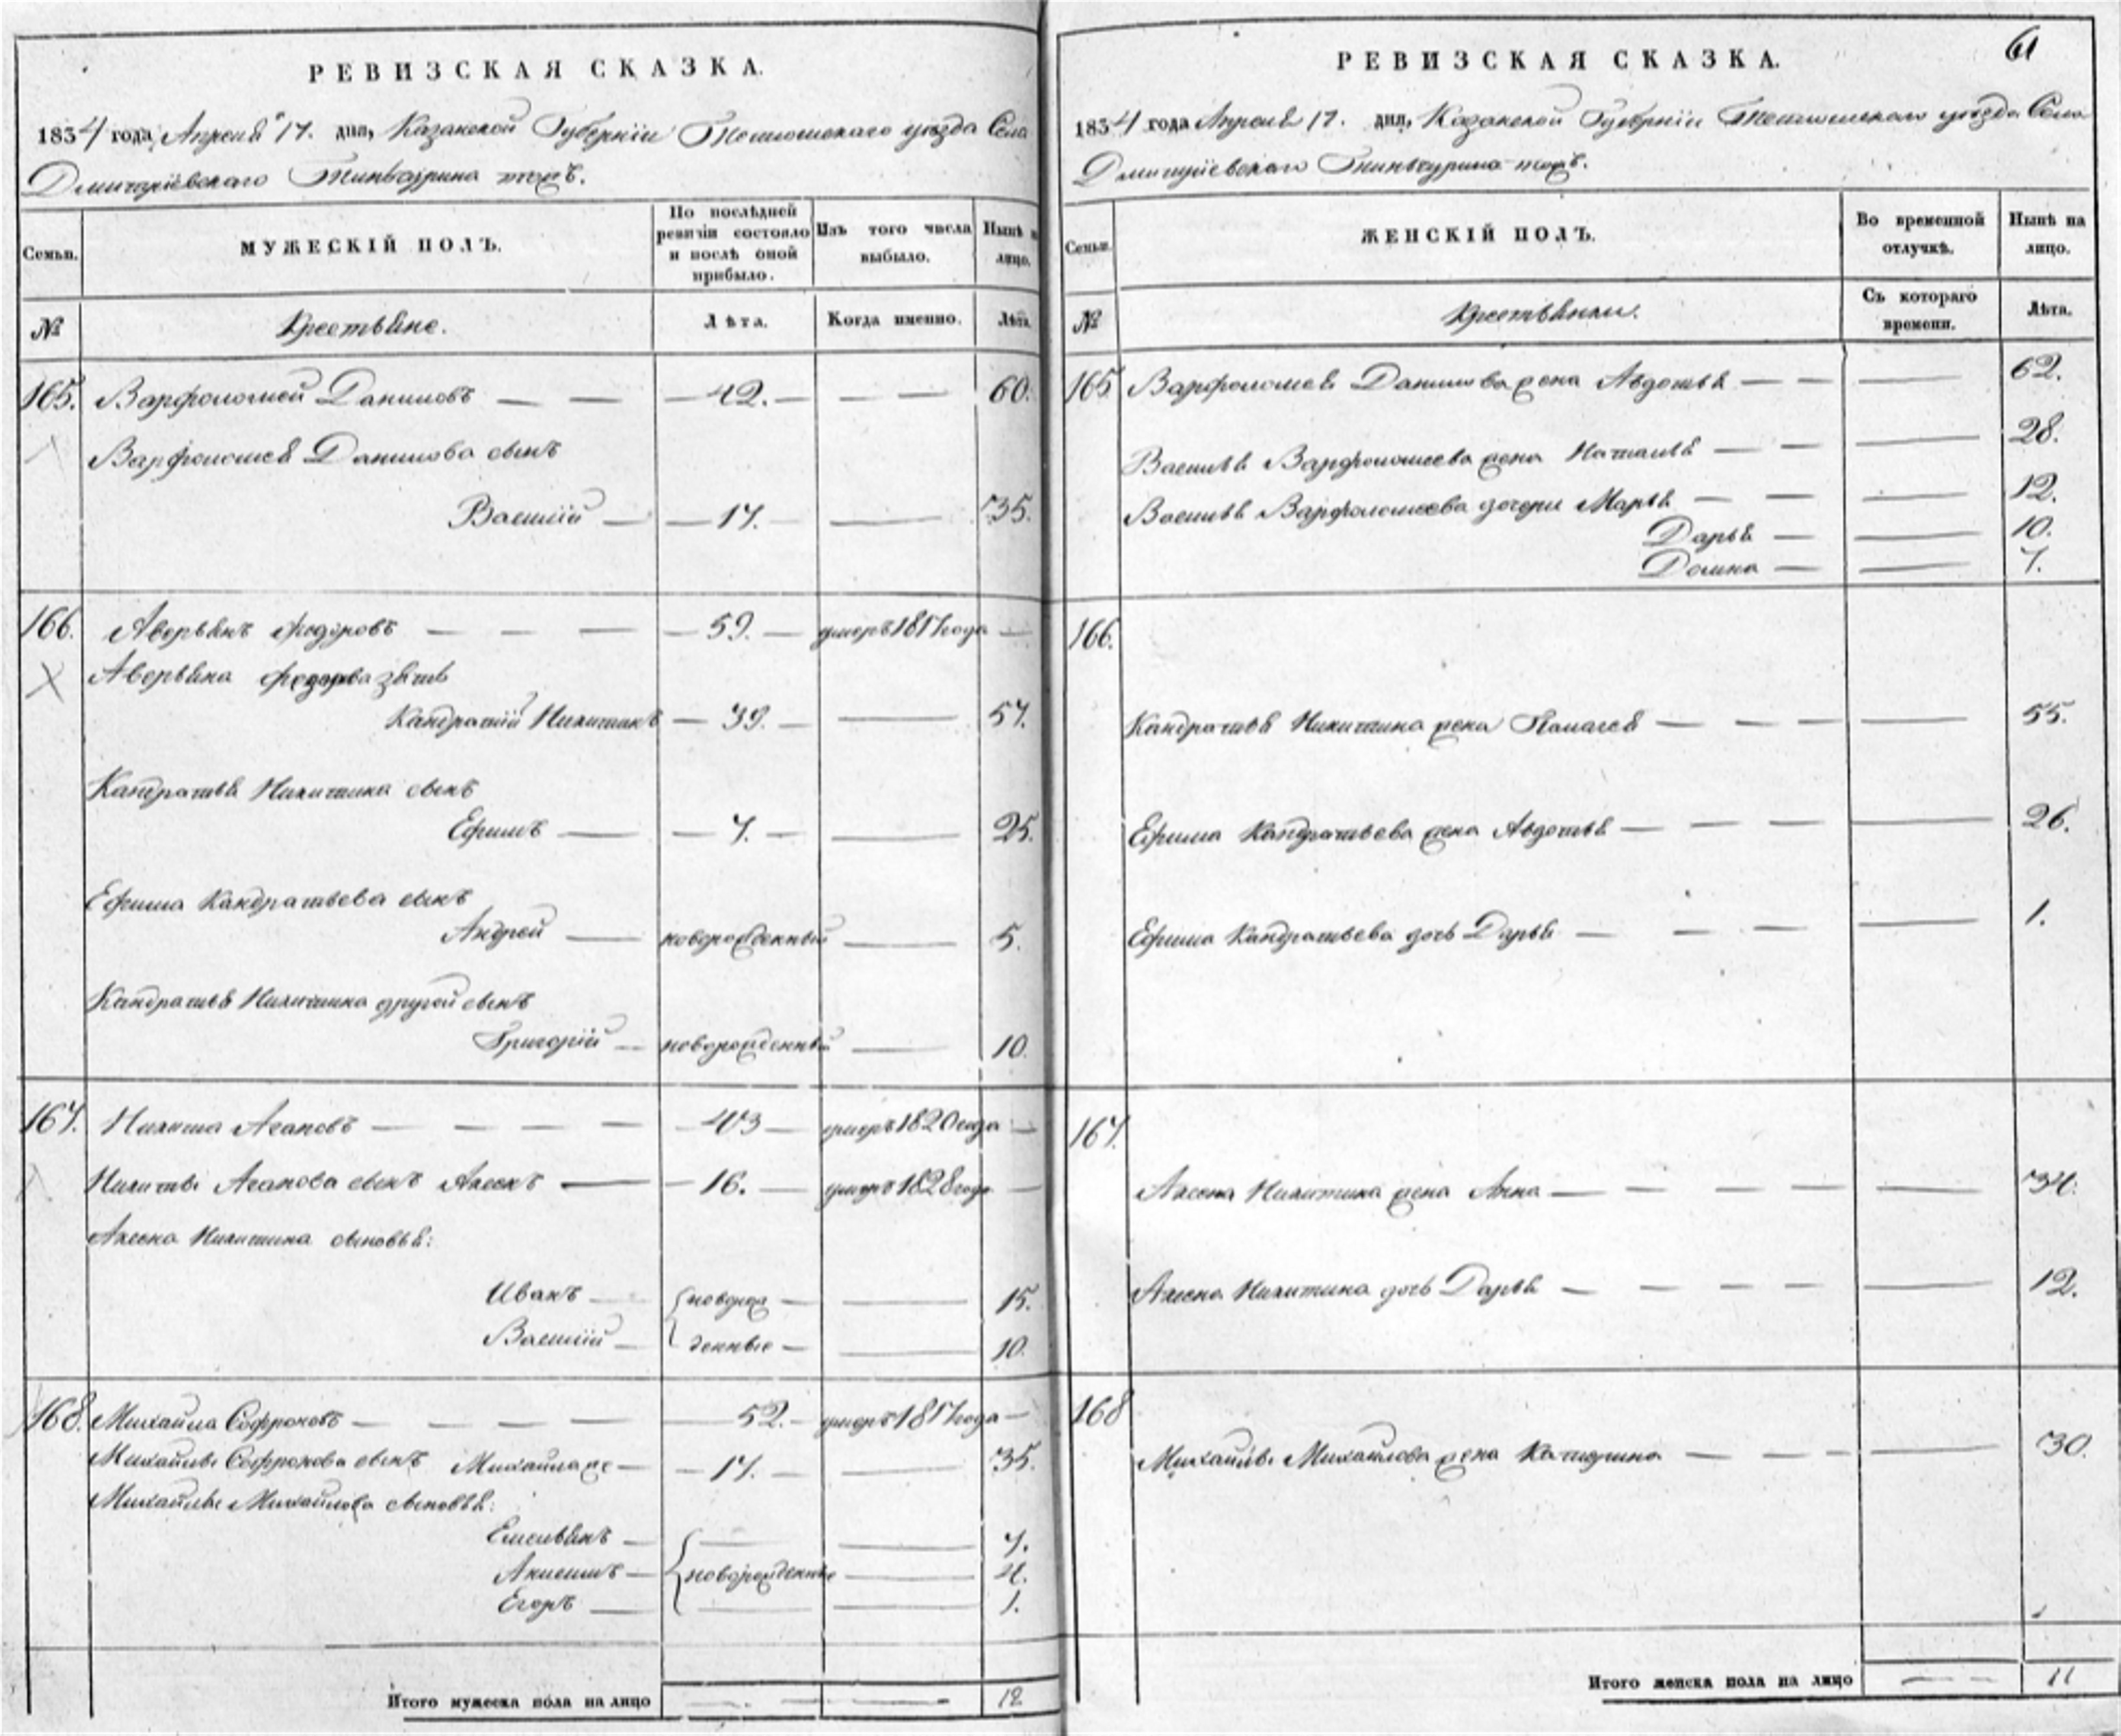 РЕВИЗСКАЯ СКАЗКА.
1834 года Апреля 17. дня, Казанской Губерніи Тетюшскаго уезда Села
Дмитріевскаго Тинчурина тожъ.
Семьи.
МУЖЕСКІЙ ПОЛЪ.
По послѣдней ревизіи состояло и послѣ оной прибыло.
Изъ того числа выбыло.
Нынѣ на лицо.
№
Крестьяне.
Лѣта.
Когда именно.
Лѣта.
165. Варфоломей Даниловъ — — — 42. — — — 60.
Варфоломея Данилова сынъ
Василій — — 17. — — 35.
166. Аверьянъ Федоровъ — — — — 59. — умеръ 1817 года —
Аверьяна Федорова зять
Кандратій Никитинъ — 39. — — 57.
Кандратья Никитина сынъ
Ефимъ — — 7. — — 25.
Ефима Кандратьева сынъ
Андрей — новорожденный — 5.
Кандратья Никитина другой сынъ
Григорій — новорожденный — 10.
167. Никита Агаповъ — — — — — 43 — умеръ 1820 года —
Никиты Агапова сынъ Аксенъ — — 16. — умеръ 1828 года —
Аксена Никитина сыновья:
Иванъ — новорож — — 15.
Василій — денные — — 10.
168. Михайла Софроновъ — — — — 52. — умеръ 1817 года —
Михайлы Софронова сынъ Михайла же — — 17. — — 35.
Михайлы Михайлова сыновья:
Емельянъ — — — 7.
Акимъ — новорожденные — 4.
Егоръ — — — 1.
Итого мужеска пола на лицо — — — 12
61
РЕВИЗСКАЯ СКАЗКА.
1834 года Апреля 17. дня, Казанской Губерніи Тетюшскаго уезда Села
Дмитріевскаго Тинчурина тожъ.
Семьи.
ЖЕНСКІЙ ПОЛЪ.
Во временной отлучкѣ.
Нынѣ на лицо.
№
Крестьянки.
Съ котораго времени.
Лѣта.
165 Варфоломея Данилова жена Авдотья — — — 62.
Василья Варфоломеева жена Наталья — — — 28.
Василья Варфоломеева дочери Марья — — — 12.
Дарья — — 10.
Домна — — 7.
166.
Кандратья Никитина жена Палагея — — — — 55.
Ефима Кандратьева жена Авдотья — — — — 26.
Ефима Кандратьева дочь Дарья — — — — 1.
167.
Аксена Никитина жена Анна — — — — — 34.
Аксена Никитина дочь Дарья — — — — — 12.
168
Михайлы Михайлова жена Катерина — — — — 30.
Итого женска пола на лицо — — 11